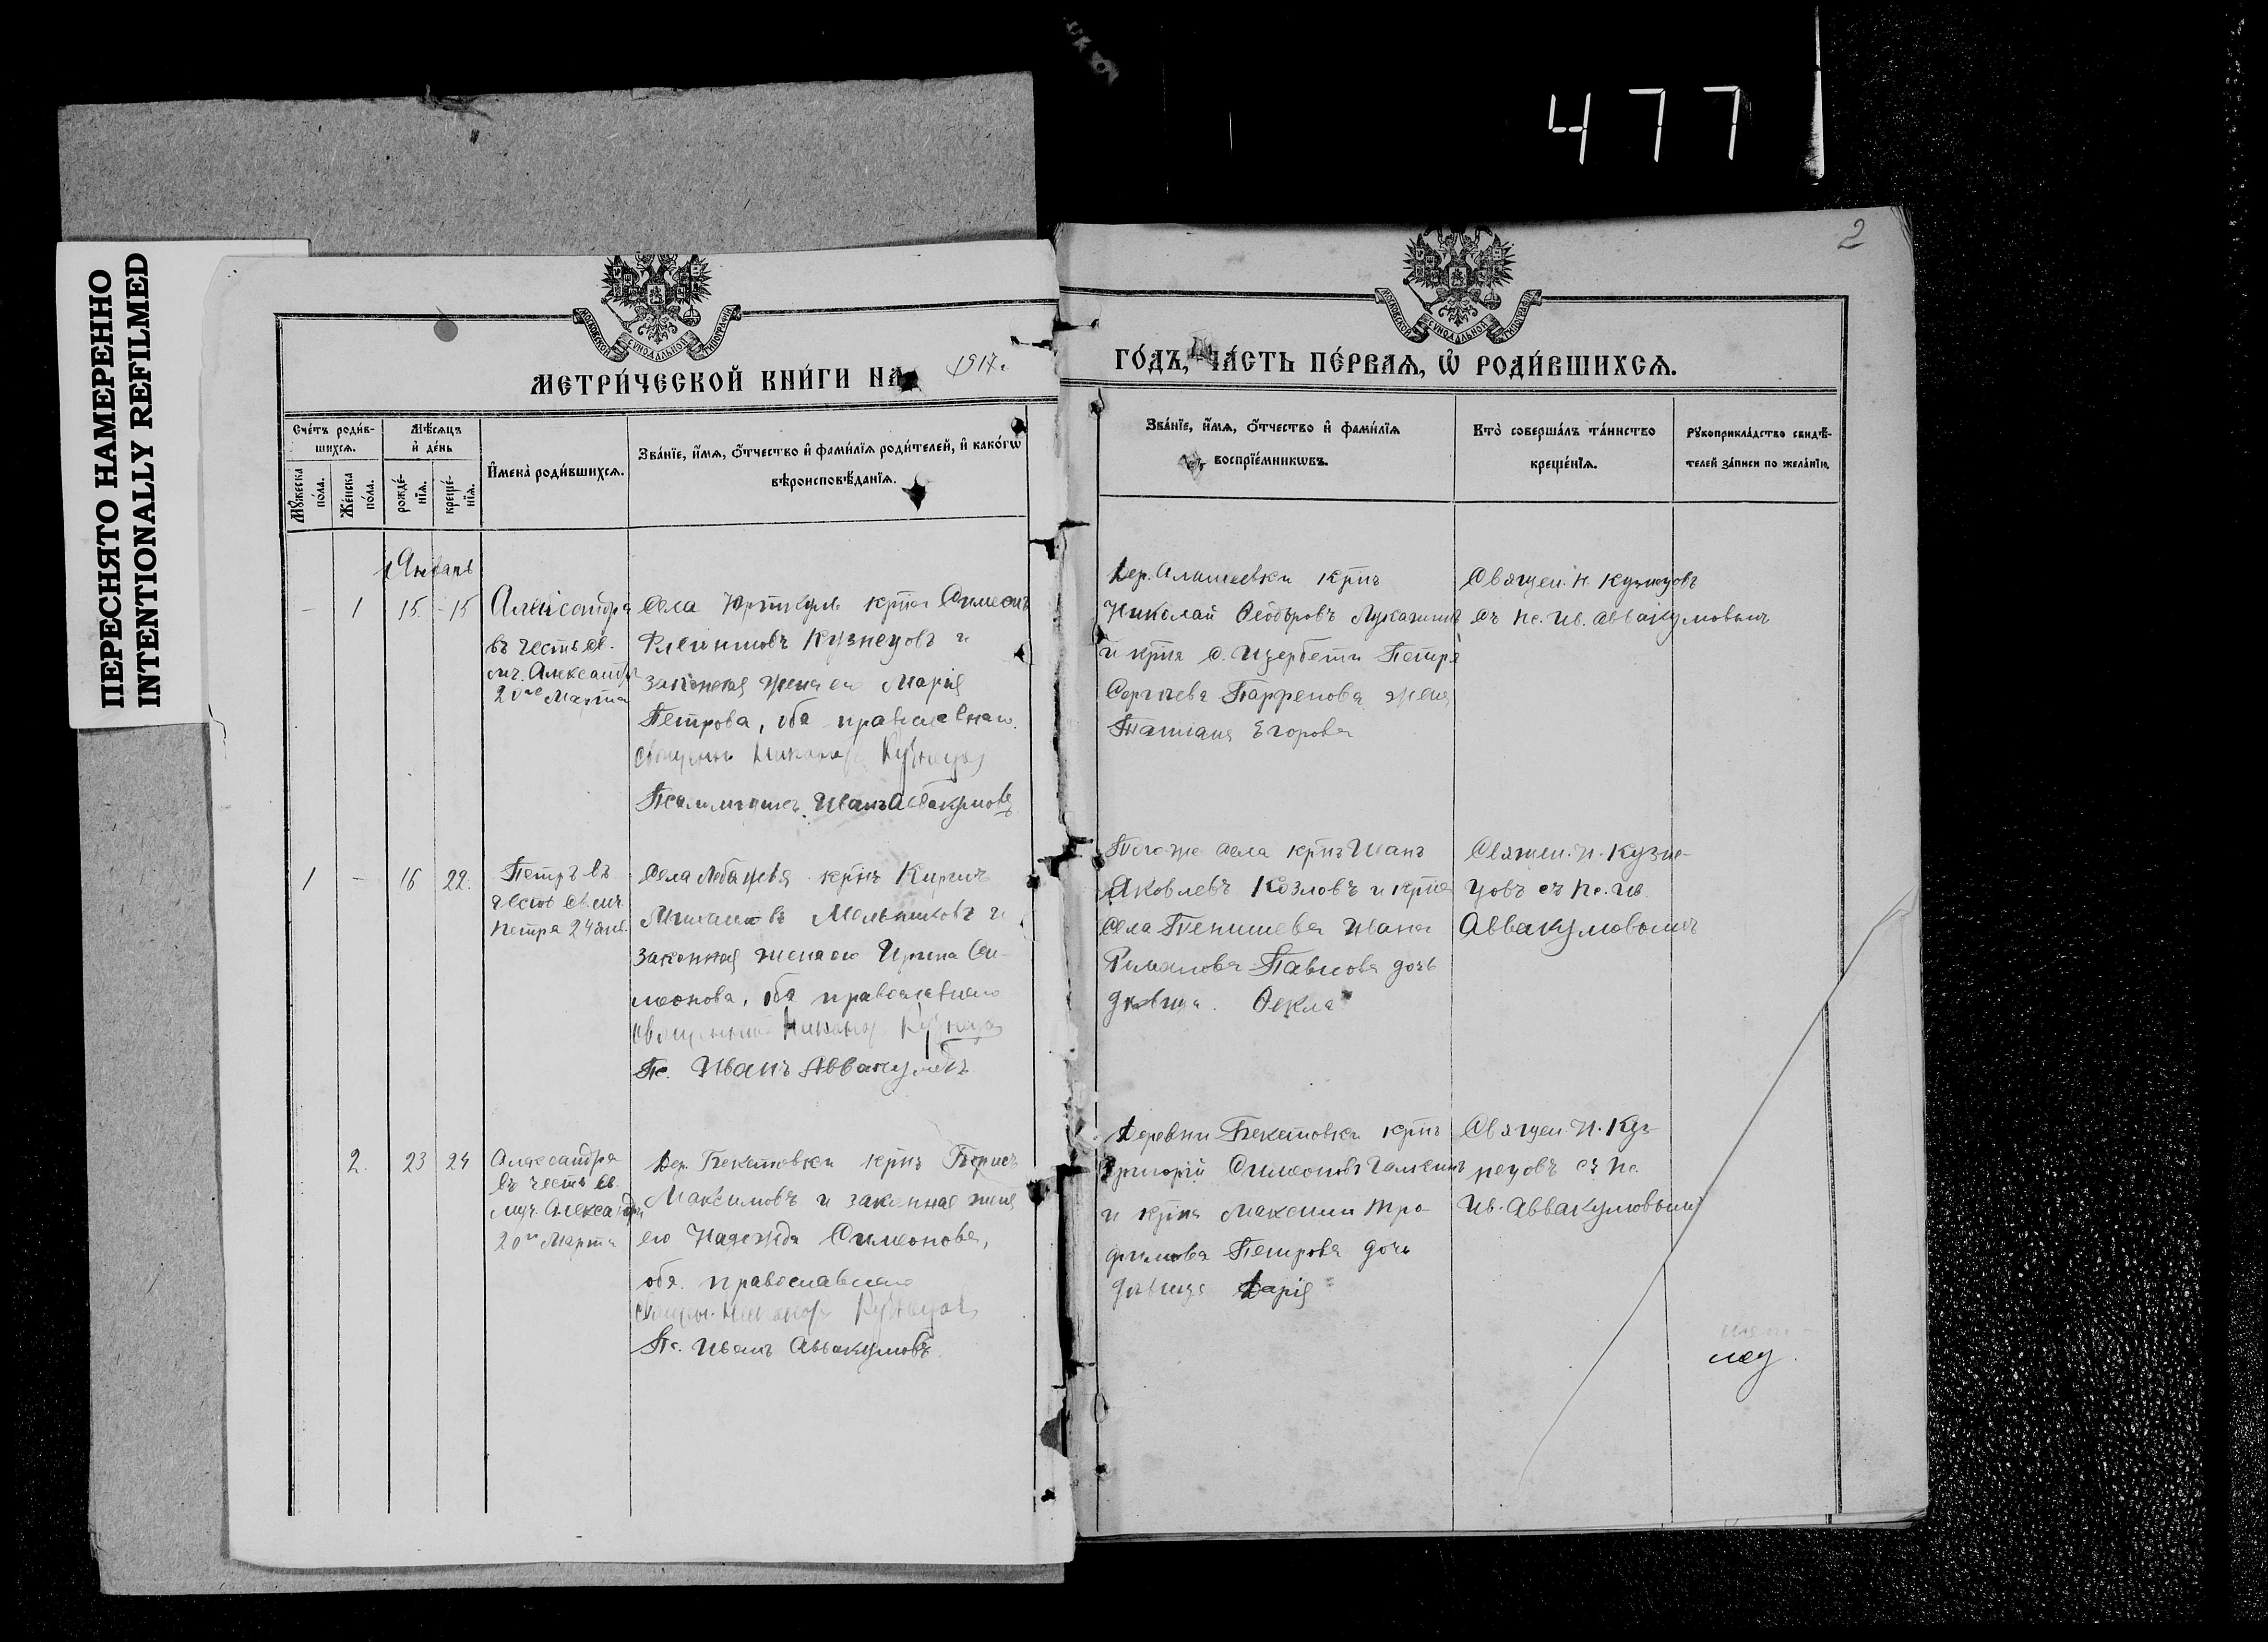 477
2
ПЕРЕСНЯТО НАМЕРЕННО
INTENTIONALLY REFILMED
МОСКОВСКОЙ СѴНОДАЛЬНОЙ ТИПОГРАФІИ
МОСКОВСКОЙ СѴНОДАЛЬНОЙ ТИПОГРАФІИ
МЕТРИ́ЧЕСКОЙ КНИ́ГИ НА 1917г.
ГО́ДЪ, ЧА́СТЬ ПЕ́РВАЯ, Ѡ҆ РОДИ́ВШИХСѦ.
Сче́тъ роди́в-
шихсѧ.
Мꙋ́жеска
по́ла.
Же́нска
по́ла.
Мѣ́сѧцъ
и҆ де́нь
рожде́-
нїѧ.
креще́-
нїѧ.
И҆мена̀ роди́вшихсѧ.
Зва́нїе, и҆́мѧ, ѻ҆́тчество и҆ фами́лїѧ роди́телей, и҆ како́гѡ
вѣроисповѣ́данїѧ.
Зва́нїе, и҆́мѧ, ѻ҆́тчество и҆ фами́лїѧ
воспрїе́мникѡвъ.
Кто̀ соверша́лъ та́инство
креще́нїѧ.
Рꙋкоприкла́дство свидѣ́-
телей за́писи по жела́нїю.
Январь
- 1 15 - 15
Александра
въ честь св.
мч. Александры
20го Марта
Села крнъ Симеонъ
Кузнецовъ и
законная жена его Марія
Петрова, оба православнаго.
Священникъ Никаноръ Кузнецовъ
Псаломщикъ Иванъ Аввакумовъ
Дер. крнъ
Николай Ѳеодоровъ
и крна с. Петра
Сергѣева Парѳенова жена
Татіана Егорова
Священ. Н. Кузнецовъ
съ пс. Ив. Аввакумовымъ
1 - 16 22.
Петръ въ
честь св. мч.
Петра 24 янв.
Села крнъ
Мельниковъ и
законная жена его Ирина Си-
меонова, оба православнаго
Священникъ Никаноръ Кузнецовъ
Пс. Иванъ Аввакумовъ
Того же села крнъ Иванъ
Яковлевъ Козловъ и крна
села Тенишева Ивана
Павлова дочь
дѣвица Ѳекла
Священ. Н. Кузне-
цовъ съ пс. Ив.
Аввакумовымъ
2. 23 24
Александра
въ честь св.
муч. Александры
20го Марта
Дер. Бекетовки крнъ Борисъ
Максимовъ и законная жена
его Надежда Симеонова,
оба православнаго
Священ. Никаноръ Кузнецовъ
Пс. Иванъ Аввакумовъ
Деревни Бекетовки крнъ
Григорій Симеоновъ Галкинъ
и крна Максима Тро-
фимова Петрова дочь
дѣвица Дарія
Священ. Н. Куз-
нецовъ съ пс.
Ив. Аввакумовымъ